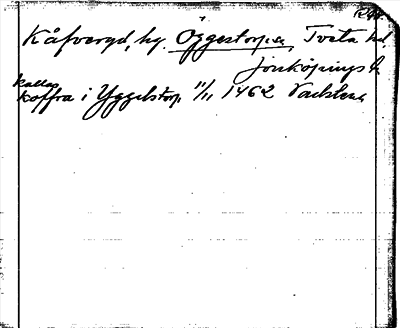 Kåfvergd, hg. Öggestorps s, Tveta hd,
Jönköpings l.
kallas
Koffra i Yggelstorp 11/11 1462 Vadstena